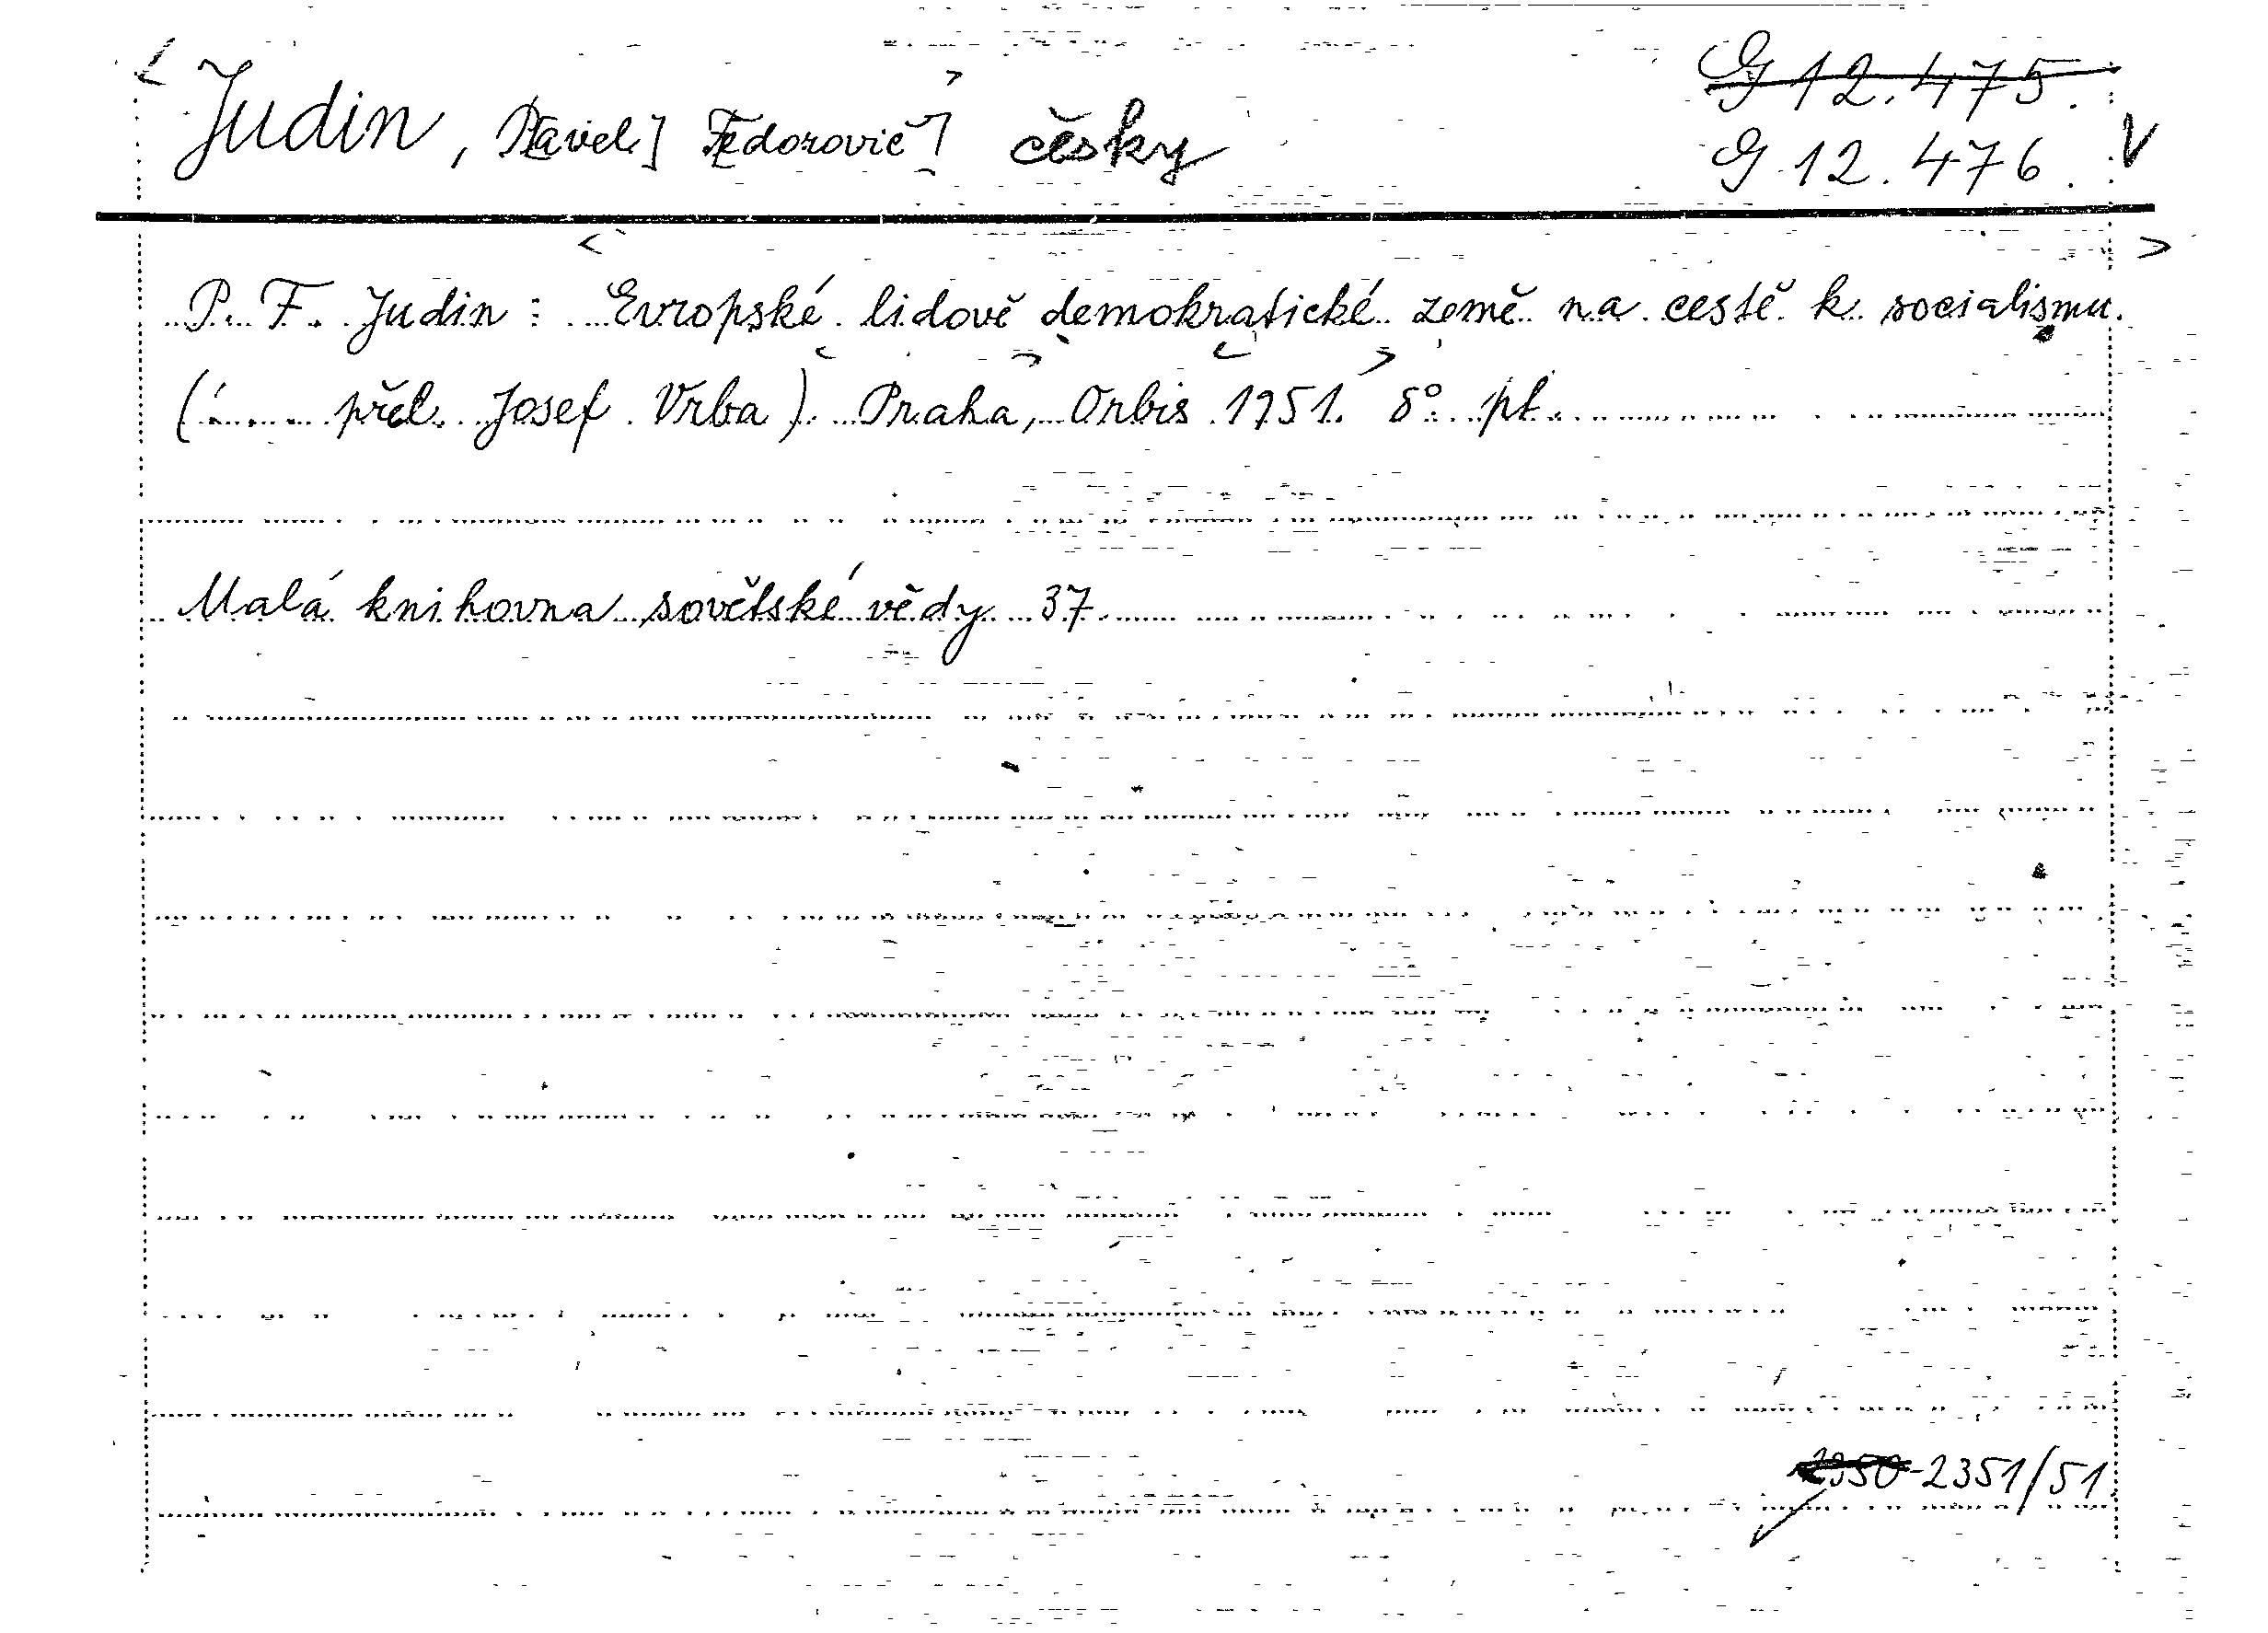 Judin, P[avel] F[edorovič] česky
G 12.475.
G 12.476. V
P. F. Judin: Evropské lidově demokratické země na cestě k socialismu.
(... přel. Josef Vrba). Praha, Orbis 1951. 8° pt.
Malá knihovna sovětské vědy 37.
2350-2351/51